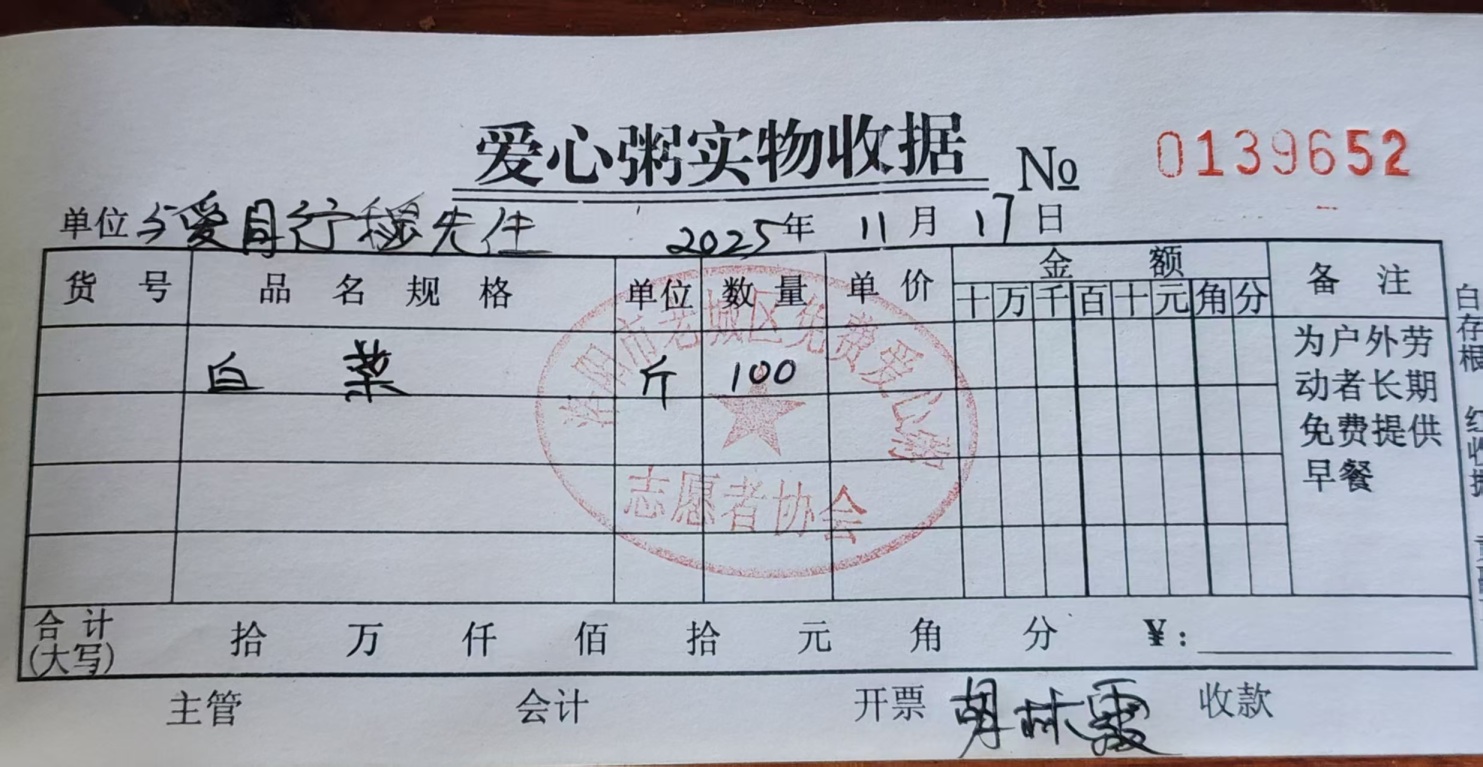 爱心粥实物收据 № 0139652
单位 与爱同行穆先生 2025年 11月 17日
货号 品名规格 单位 数量 单价 金额 备注
十万千百十元角分
白菜 斤 100
为户外劳
动者长期
免费提供
早餐
洛阳市老城区免费爱心粥
志愿者协会
合计
(大写) 拾 万 仟 佰 拾 元 角 分 ¥:
主管 会计 开票 胡林霞 收款
白存根 红收据